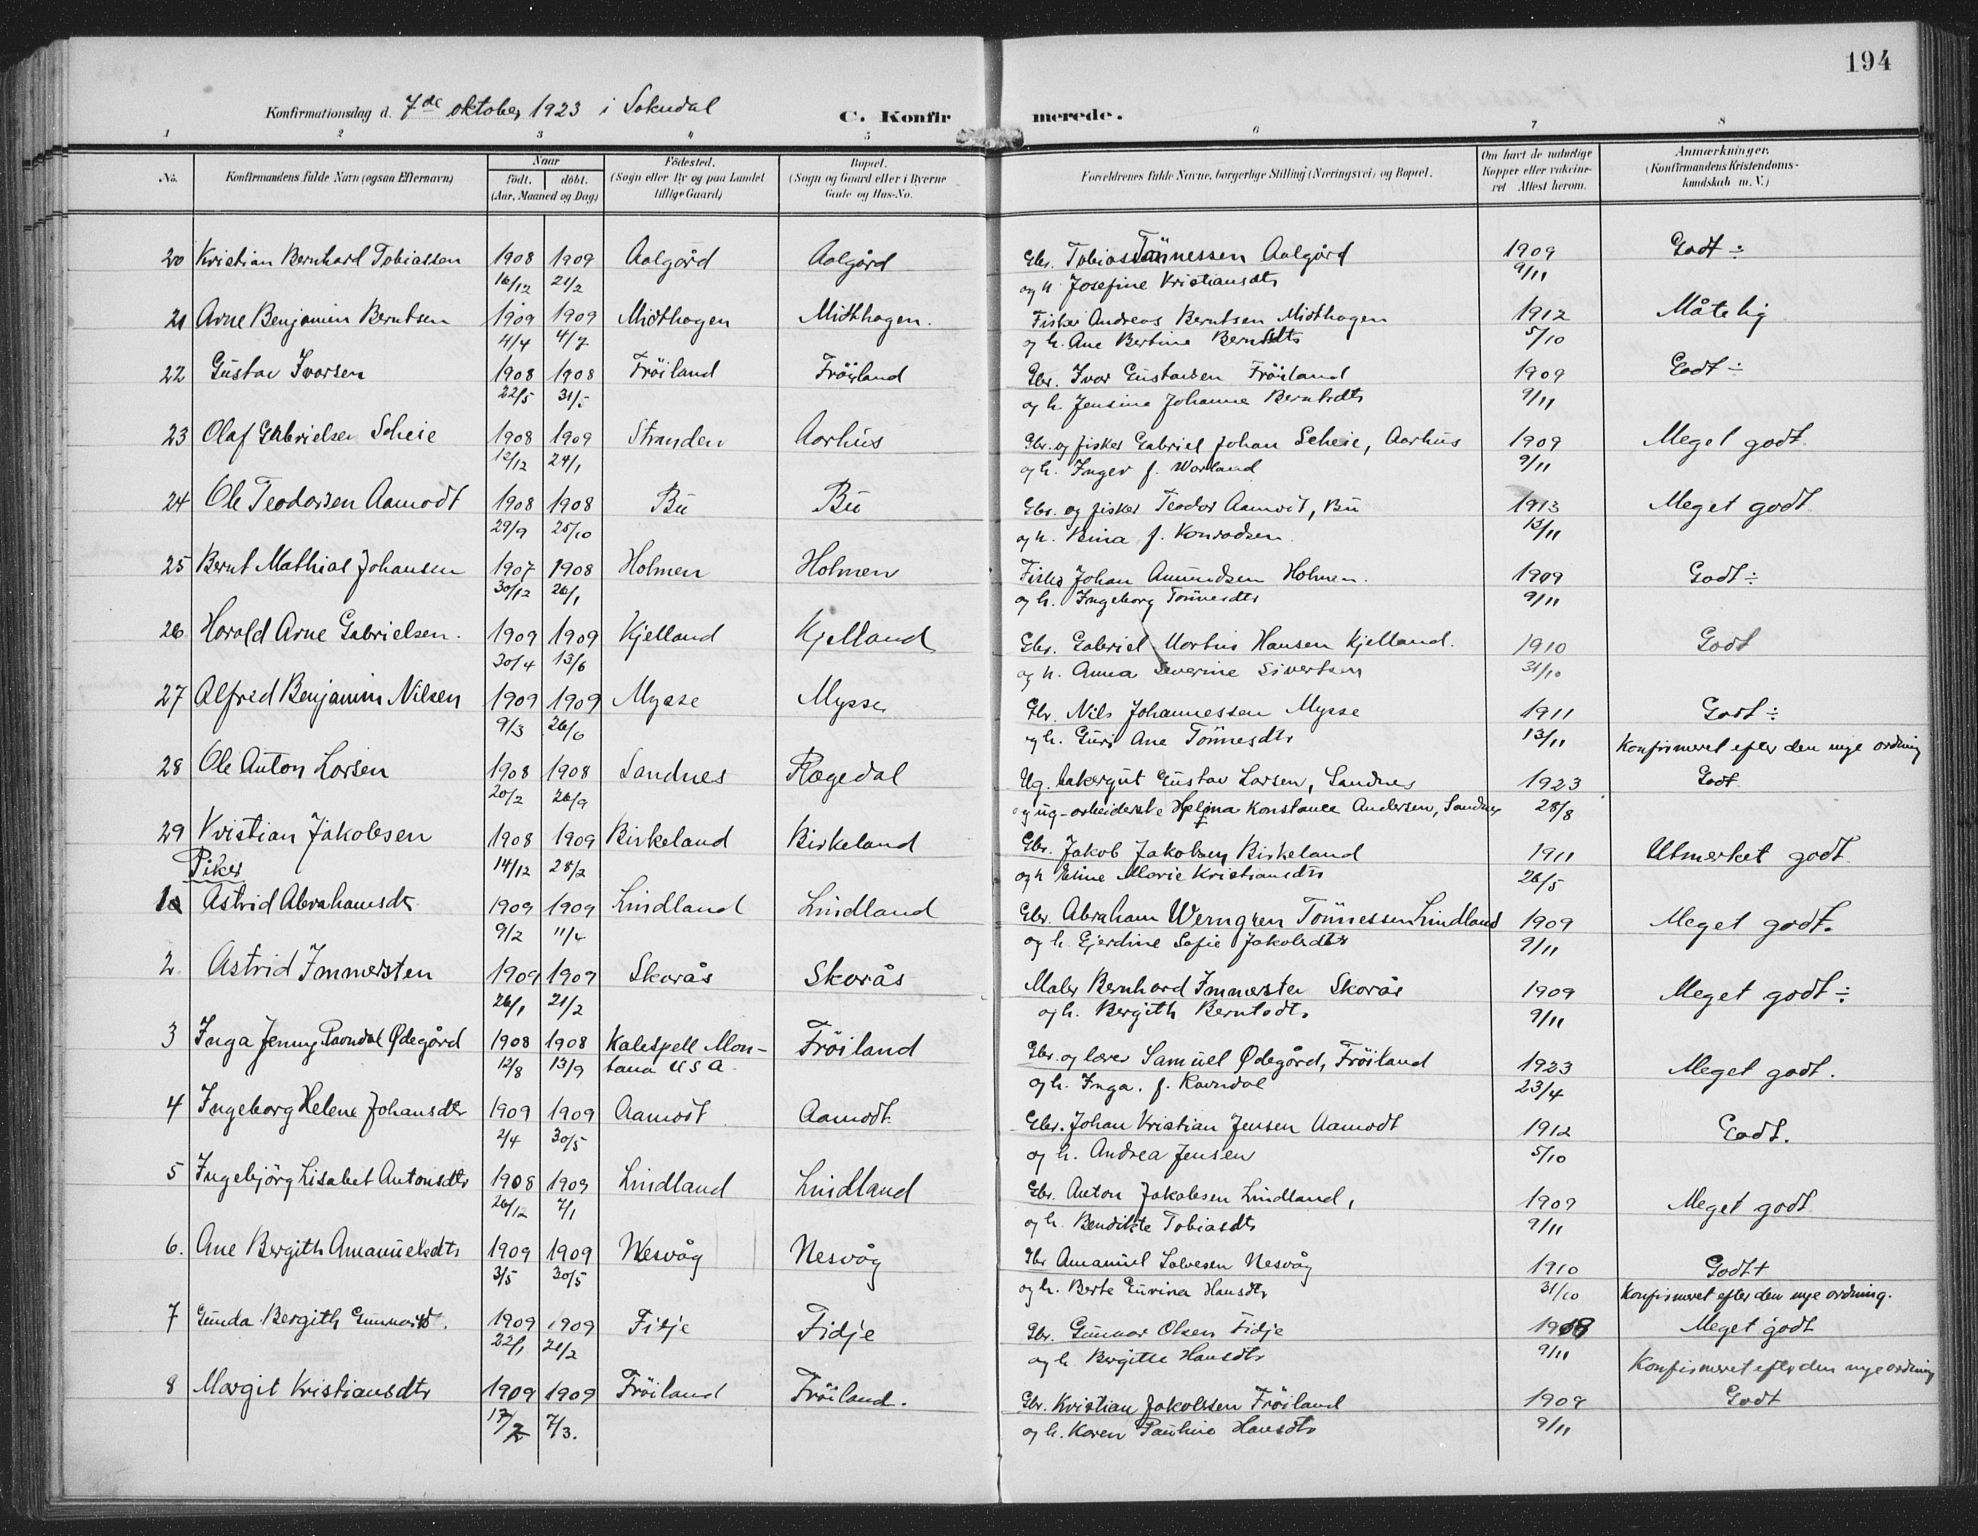 194
Konfirmationsdag d. 7de oktober 1923 i Sokndal
C. Konfirmerede.
1 2 3 4 5 6 7 8
No. Konfirmandens fulde Navn (ogsaa Efternavn) Naar født. døbt. (Aar, Maaned og Dag) Fødested. (Sogn eller By og paa Landet tillige Gaard) Bopæl. (Sogn og Gaard eller i Byerne Gade og Hus-No. Forældrenes fulde Navne, borgerlige Stilling (Næringsvei) og Bopæl. Om havt de naturlige Kopper eller vakcineret Attest herom. Anmærkninger. (Konfirmandens Kristendomskundskab m. V.)
20 Kristian Bernhard Tobiassen 1908 1909 Aalgård Aalgård Gbr. Tobias Tönnessen Aalgård 1909 Godt ÷
16/12 21/2 og h. Josefine Kristiansdtr 9/11
21 Arne Benjamin Berntsen 1909 1909 Midthagen Midthagen. Fisker Andreas Berntsen Midthagen 1912 Måtelig
4/4 4/7 og h. Ane Bertine Berntsdtr 5/10
22 Gustav Ivarsen 1908 1908 Fröiland Fröiland Gbr. Ivar Gustavsen Fröiland 1909 Godt ÷
22/5 31/5 og h. Jensine Johanne Berntsdtr 9/11
23 Olaf Gabrielsen Scheie 1908 1909 Stranden Aarhus Gbr. og fisker Gabriel Johan Scheie, Aarhus 1909 Meget godt
12/12 24/1 og h. Inger f. Warland 9/11
24 Ole Teodorsen Aamodt 1908 1908 Bu Bu Gbr. og fisker Teodor Aamodt, Bu 1913 Meget godt
29/9 25/10 og h. f. Konradsen 13/11
25 Bernt Mathias Johansen 1907 1908 Holmen Holmen Fisker Johan Amundsen Holmen. 1909 Godt ÷
30/12 26/1 og h. Ingeborg Tönnesdtr 9/11
26 Harald Arne Gabrielsen. 1909 1909 Kjelland Kjelland Gbr. Gabriel Martin Hansen Kjelland. 1910 Godt
30/4 13/6 og h. Anna Severine Sivertsen 31/10
27 Alfred Benjamin Nilsen 1909 1909 Mysse Mysse Gbr. Nils Johannessen Mysse 1911 Godt ÷
9/3 26/6 og h. Guri Ane Tönnesdtr 13/11 Konfirmeret efter den nye ordning
28 Ole Anton Larsen 1908 1908 Sandnes Rægedal Ug. bakergut Gustav Larsen, Sandnes 1923 Godt
20/2 26/9 og ug. arbeiderske Helena Konstance Andersen, Sandnes 28/8
29 Kristian Jakobsen 1908 1909 Birkeland Birkeland Gbr. Jakob Jakobsen Birkeland 1911 Utmerket godt
14/12 28/2 og h Eline Marie Kristiansdtr 26/5
Piker
1 Astrid Abrahamsdtr 1909 1909 Lindland Lindland Gbr. Abraham Werngren Tönnessen Lindland 1909 Meget godt.
9/2 11/4 og h. Gjerdine Sofie Jakobsdtr 9/11
2. Astrid Immersten 1909 1909 Skorås Skorås Maler Bernhard Immersten Skorås 1909 Meget godt ÷
26/1 21/2 og h. Bergith Berntsdtr 9/11
3 Inga Jenny Ravndal Ødegård 1908 1908 Kalespell Mon- Fröiland Gbr. og lærer Samuel Ødegård, Fröiland 1923 Meget godt.
12/8 13/9 tana USA. og h. Inga. f. Ravndal 23/4
4 Ingeborg Helene Johansdtr 1909 1909 Aamodt Aamodt. Gbr. Johan Kristian Jensen Aamodt 1912 Godt.
2/4 30/5 og h. Andrea Jensen 5/10
5 Ingebjörg Lisabet Antonsdtr 1908 1909 Lindland Lindland Gbr. Anton Jakobsen Lindland, 1909 Meget godt
26/12 7/1 og h. Bendikte Tobiasdtr 9/11
6. Ane Bergith Amanuelsdtr 1909 1909 Nesvåg Nesvåg Gbr Amanuel Salvesen Nesvåg 1910 Godt +
3/5 30/5 og h. Berte Gurina Hansdtr 31/10 Konfirmeret efter den nye ordning.
7 Gunda Bergith Gunnarsdt. 1909 1909 Fidje Fidje Gbr. Gunnar Olsen Fidje 1908 Meget godt
22/1 21/2 og h. Bergitte Hansdtr 9/11 Konfirmeret efter den nye ordning
8 Margit Kristiansdtr 1909 1909 Fröiland Fröiland. Gbr. Kristian Jakobsen Fröiland 1909 Godt
17/2 7/3. og h. Karen Pauline Hansdtr 9/11